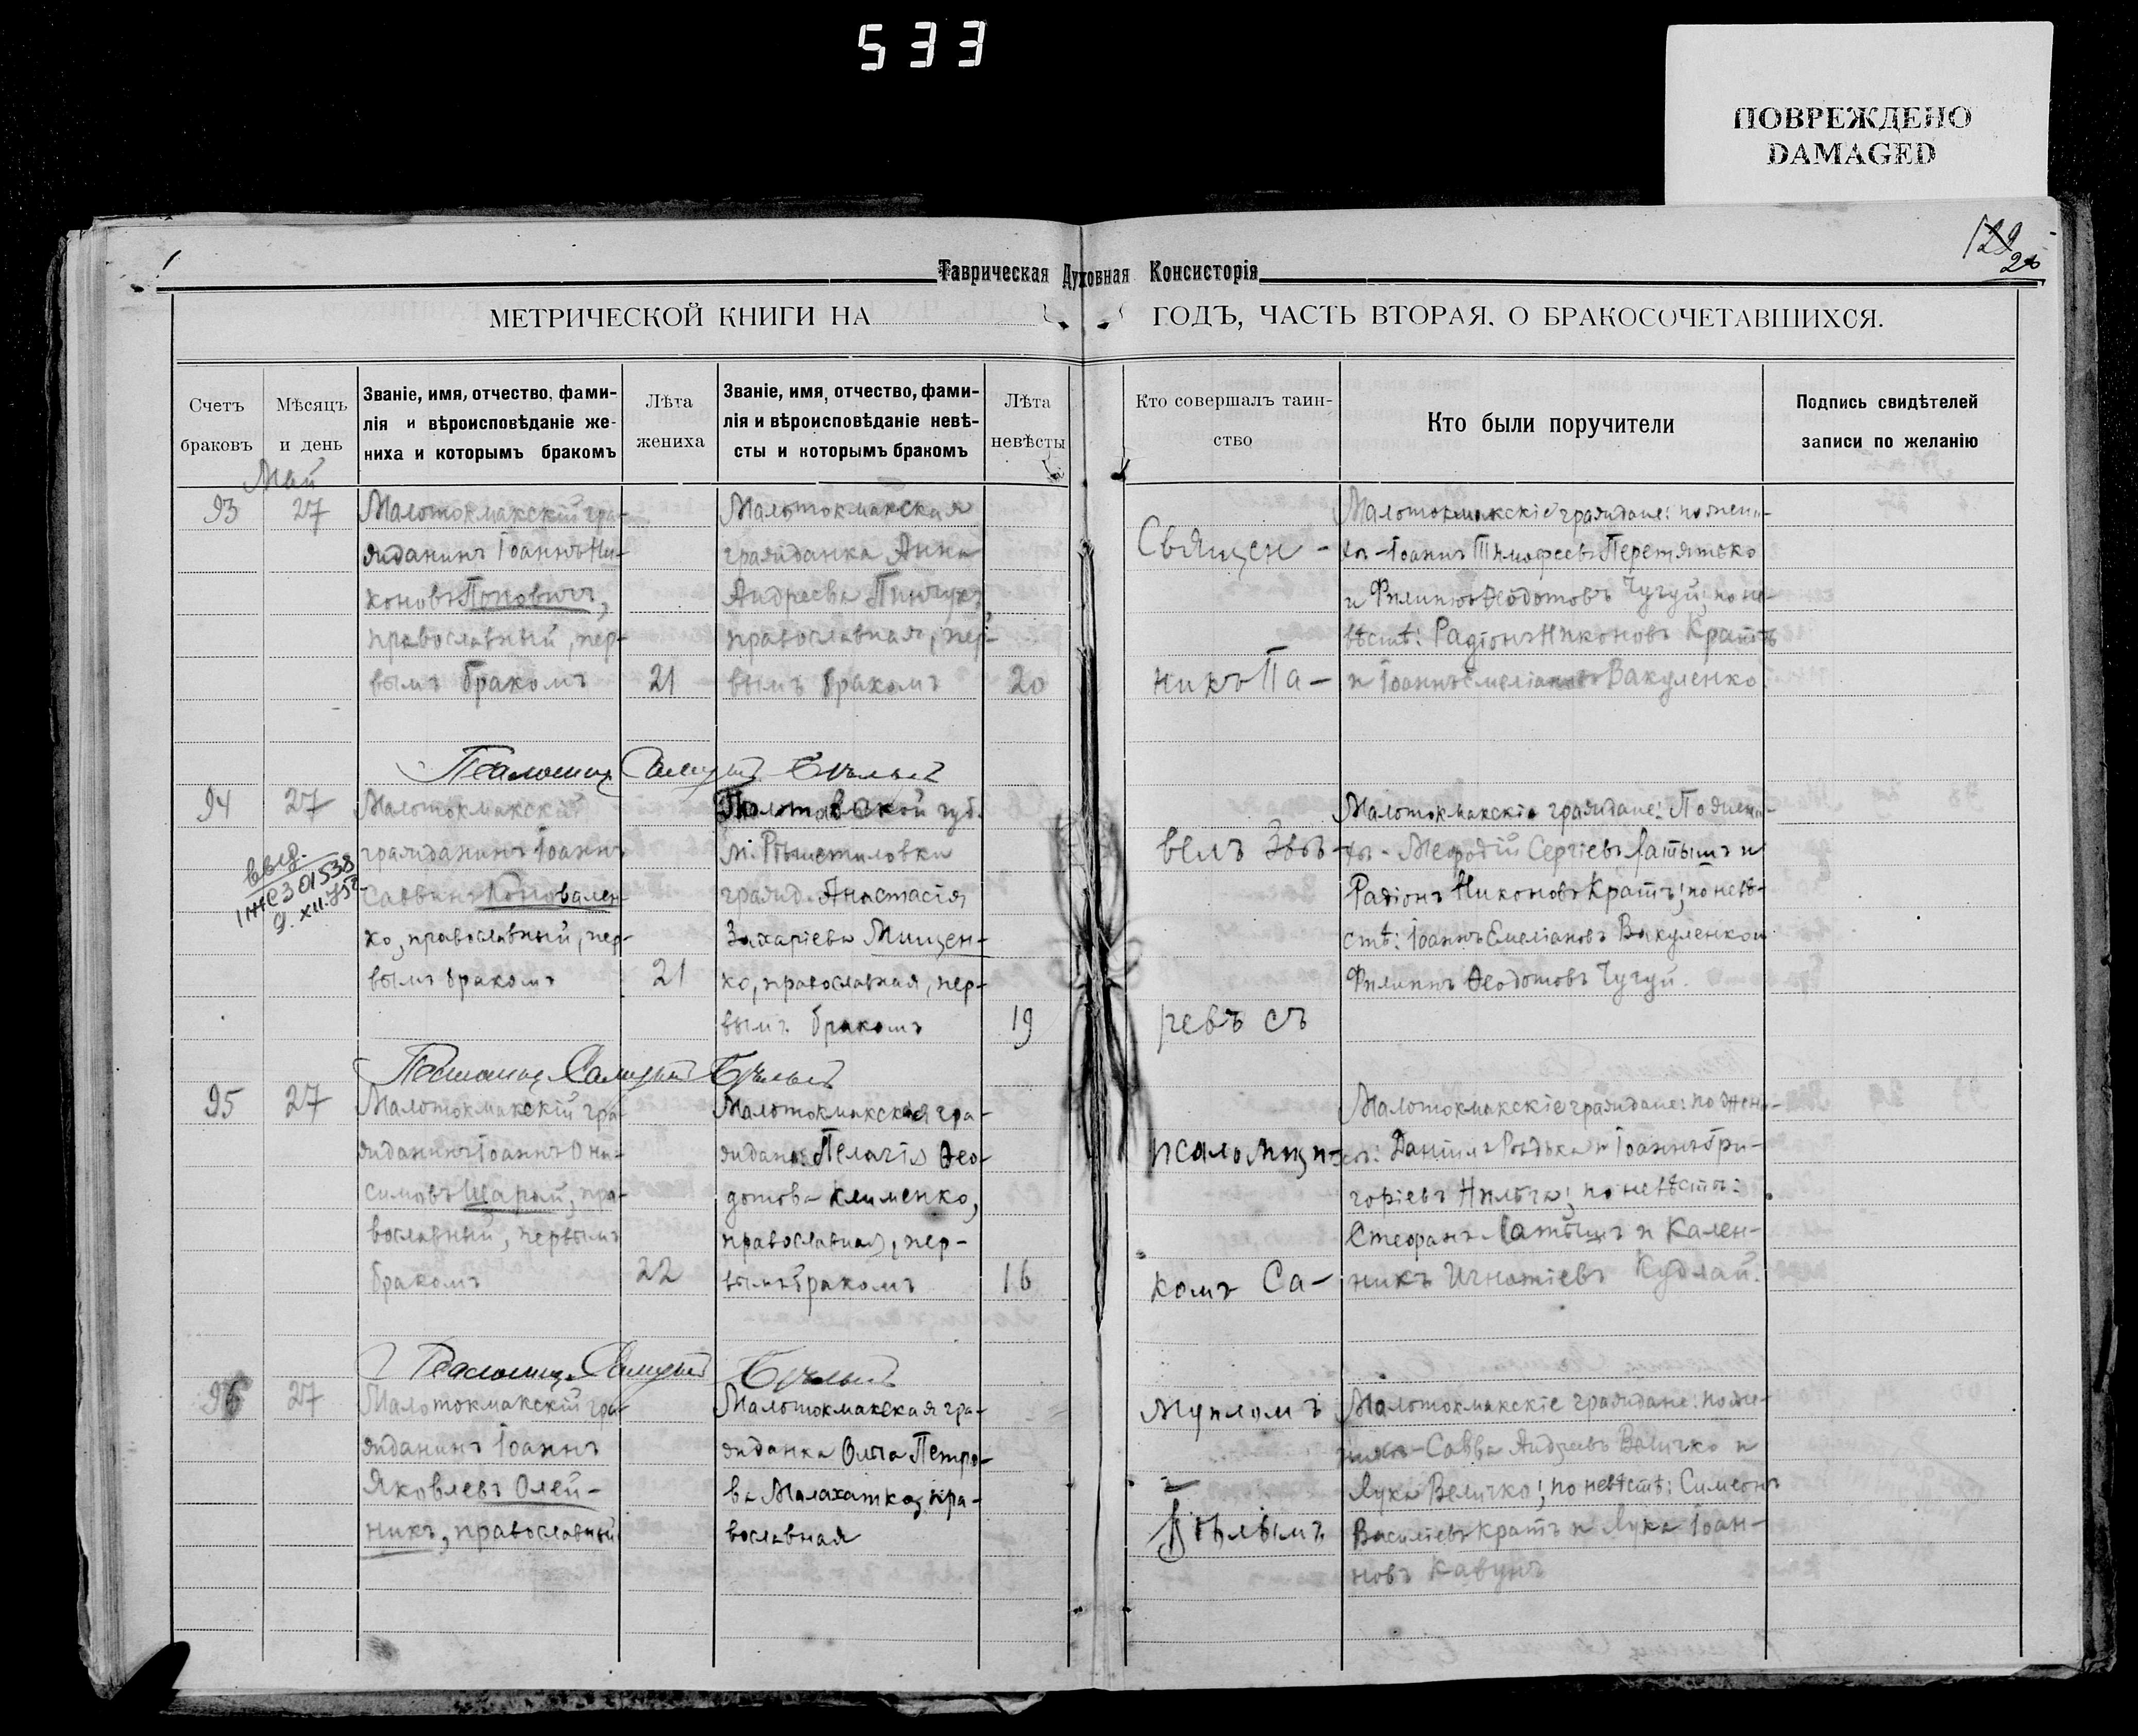 533
ПОВРЕЖДЕНО
DAMAGED
Таврическая Духовная Консисторія
МЕТРИЧЕСКОЙ КНИГИ НА
ГОДЪ, ЧАСТЬ ВТОРАЯ, О БРАКОСОЧЕТАВШИХСЯ.
Счетъ
браковъ
Мѣсяцъ
и день
Званіе, имя, отчество, фами-
лія и вѣроисповѣданіе же-
ниха и которымъ бракомъ
Лѣта
жениха
Званіе, имя, отчество, фами-
лія и вѣроисповѣданіе невѣ-
сты и которымъ бракомъ
Лѣта
невѣсты
Кто совершалъ таин-
ство
Кто были поручители
Подпись свидѣтелей
записи по желанію
Май
93
27
Малотокмакскій гра-
жданинъ Іоаннъ Ни-
коновъ Поповичъ,
православный, пер-
вымъ бракомъ
21
Малотокмакская
гражданка Анна
Андреева Пинчукъ,
православная, пер-
вымъ бракомъ
20
Малотокмакскіе граждане: по жени-
хѣ - Іоаннъ Тимофеевъ Перетятько
и Филиппъ Ѳеодотовъ Чугуй; по не-
вѣстѣ: Радіонъ Никоновъ Кратъ
и Іоаннъ Емеліановъ Вакуленко.
94
27
Малотокмакскій
гражданинъ Іоаннъ
Саввинъ Коновален-
ко, православный, пер-
вымъ бракомъ
21
Полтавской губ.
м. Рѣшетиловки
гражд. Анастасія
Захаріева Мищен-
ко, православная, пер-
вымъ бракомъ
19
Малотокмакскіе граждане: По жени-
хѣ - Мефодій Сергіевъ Латышъ и
Радіонъ Никоновъ Кратъ; по невѣ-
стѣ: Іоаннъ Емеліановъ Вакуленко и
Филиппъ Ѳеодотовъ Чугуй.
95
27
Малотокмакскій гра-
жданинъ Іоаннъ Они-
симовъ Шарай, пра-
вославный, первымъ
бракомъ
22
Малотокмакская гра-
ждан. Пелагія Ѳео-
дотова Клименко,
православная, пер-
вымъ бракомъ
16
Малотокмакскіе граждане: по жени-
хѣ: Даніилъ Рѣдька и Іоаннъ Гри-
горіевъ; по невѣстѣ:
Стефанъ Латышъ и Кален-
никъ Игнатіевъ Кудлай.
96
27
Малотокмакскій гра-
жданинъ Іоаннъ
Яковлевъ Олей-
никъ, православный
Малотокмакская гра-
жданка Ольга Петро-
ва Малахатка, пра-
вославная
Малотокмакскіе граждане: по же-
нихѣ - Савва Андреевъ Величко и
Лука Величко; по невѣстѣ: Симеонъ
Василіевъ Кратъ и Лука Іоан-
новъ Кавунъ
Священ-
никъ Па-
велъ Звѣ-
ревъ съ
псаломщи-
комъ Са-
муиломъ
Бѣлымъ